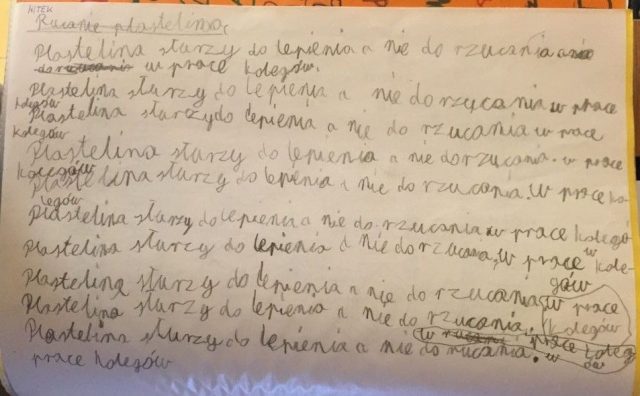 WITEK
Rucanie plastelina,
Plastelina starzy do lepienia a nie do rzucania ano
do rzucania w prace kolegów.
Plastelina starzy do lepienia a nie do rzycania w prace
kolegów
Plastelina starzy do lepienia a nie do rzucania w prace
kolegów
Plastelina starzy do lepienia a nie do rzucania. w prace
kolegów
Plastelina starzy do lepienia a nie do rzucania. w prace ko-
legów
Plastelina starzy do lepienia a nie do rzucania w prace kolegó
w
Plastelina starzy do lepienia a nie do rzucania, w prace kole-
gów
Plasteliną starzy do lepienia a nie do rzucania w prace
kolegów
Plastelina starzy do lepienia a nie do rzucania. prace koleg
ów
(w rucani w
Plastelina starzy do lepienia a nie do rucania.
prace kolegów